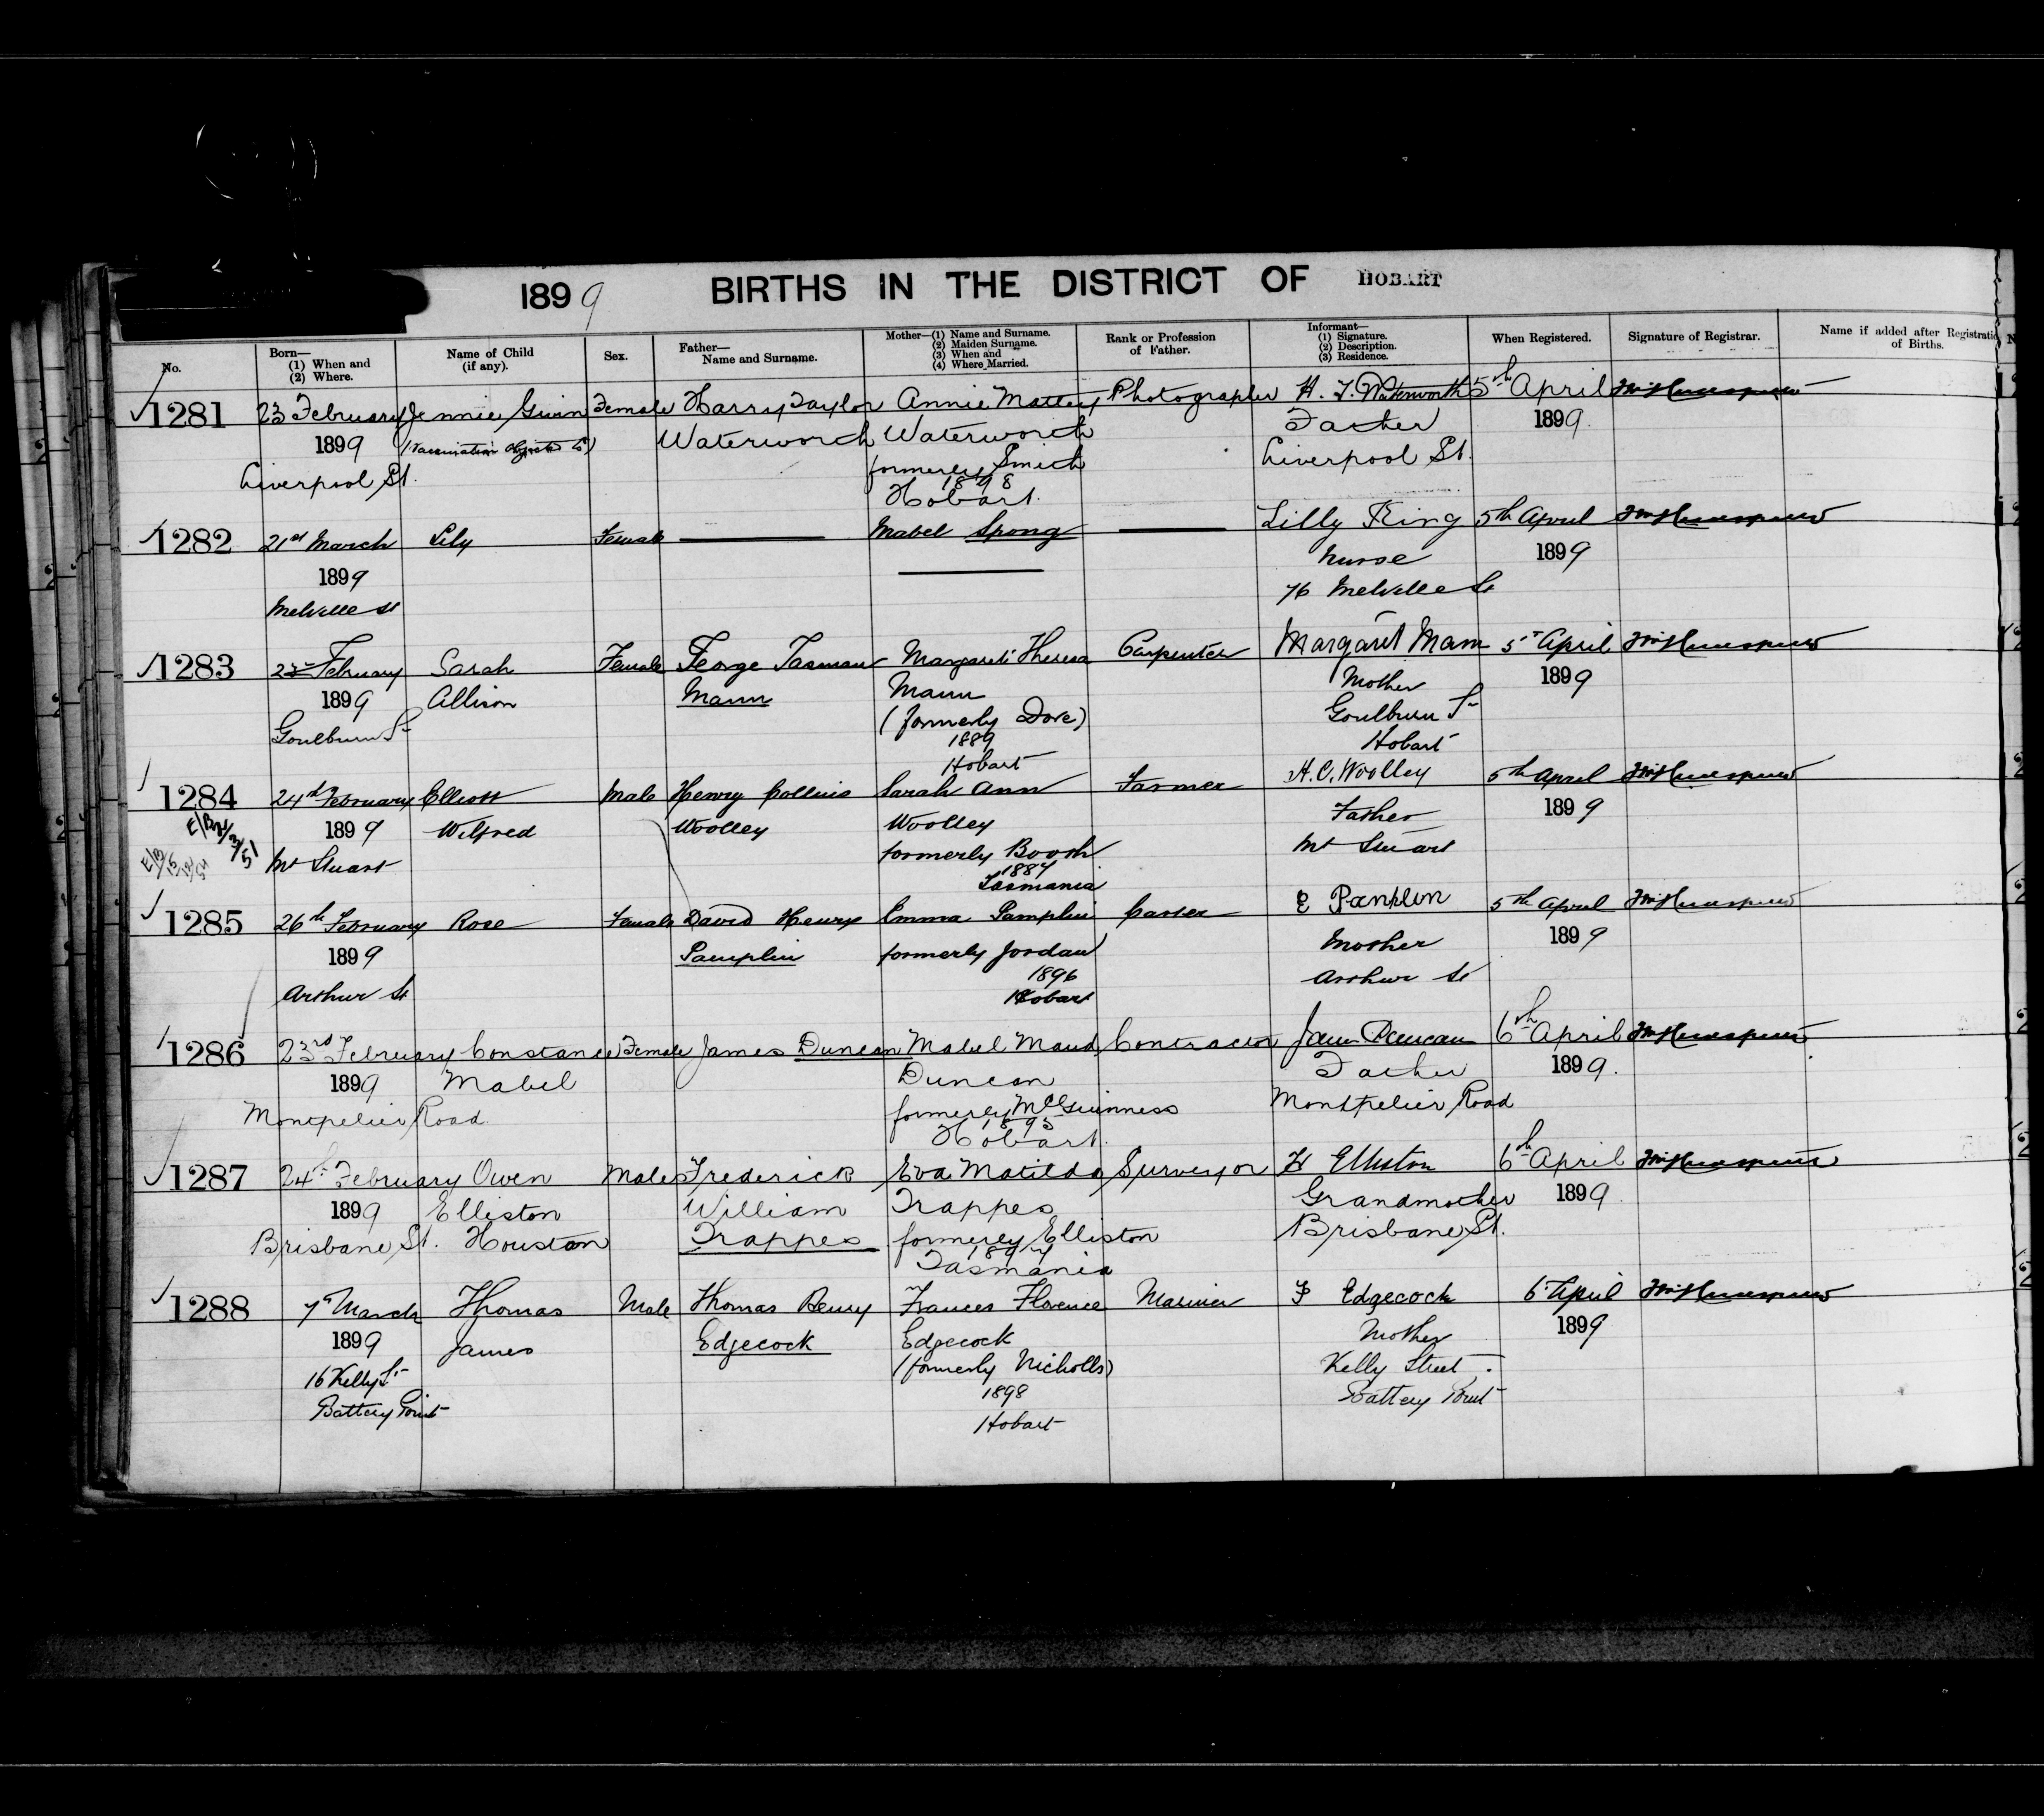 1899 BIRTHS IN THE DISTRICT OF HOBART
No.
Born— (1) When and (2) Where.
Name of Child (if any).
Sex.
Father— Name and Surname.
Mother—(1) Name and Surname. (2) Maiden Surname. (3) When and (4) Where Married.
Rank or Profession of Father.
Informant— (1) Signature. (2) Description. (3) Residence.
When Registered.
Signature of Registrar.
Name if added after Registratio of Births.
1281 23 February Jennie Female Harry Taylor Annie Photographer H. T. Waterworth 5th April
1899 (Vaccination objected to) Waterworth Waterworth Father 1899
Liverpool St. formerly Smith Liverpool St.
1898
Hobart.
1282 21st March Lily Female — Mabel Spong — Lilly King 5th April
1899 — Nurse 1899
Melville St 76 Melville St
1283 February Sarah Female George Tasman Margaret Theresa Carpenter Margaret Mann 5th April
1899 Allison Mann Mann Mother 1899
Goulburn St (formerly Dove) Goulburn St
1889 Hobart
Hobart
1284 24th February Elliott Male Henry Collins Sarah Ann Farmer H. C. Woolley 5th April
1899 Wilfred Woolley Woolley Father 1899
Mt Stuart formerly Booth Mt Stuart
1887
Tasmania
1285 26th February Rose Female David Henry Emma Pamplin Carter E 5th April
1899 Pamplin formerly Jordan Mother 1899
Arthur St 1896 Arthur St
Hobart
1286 23rd February Constance Female James Duncan Mabel Maud Contractor Duncan 6th April
1899 Mabel Duncan Father 1899.
Montpelier Road formerly McGuinness Montpelier Road
1895
Hobart.
1287 24th February Owen Male Frederick Eva Matilda Surveyor H Elliston 6th April
1899 Elliston William Trappes Grandmother 1899.
Brisbane St. Houston Trappes formerly Elliston Brisbane St.
1897
Tasmania
1288 7th March Thomas Male Thomas Henry Frances Florence Mariner F Edgecock 6th April
1899 James Edgecock Edgecock Mother 1899
16 Kelly St (formerly Nicholls) Kelly Street.
Battery Point 1898 Battery Point
Hobart